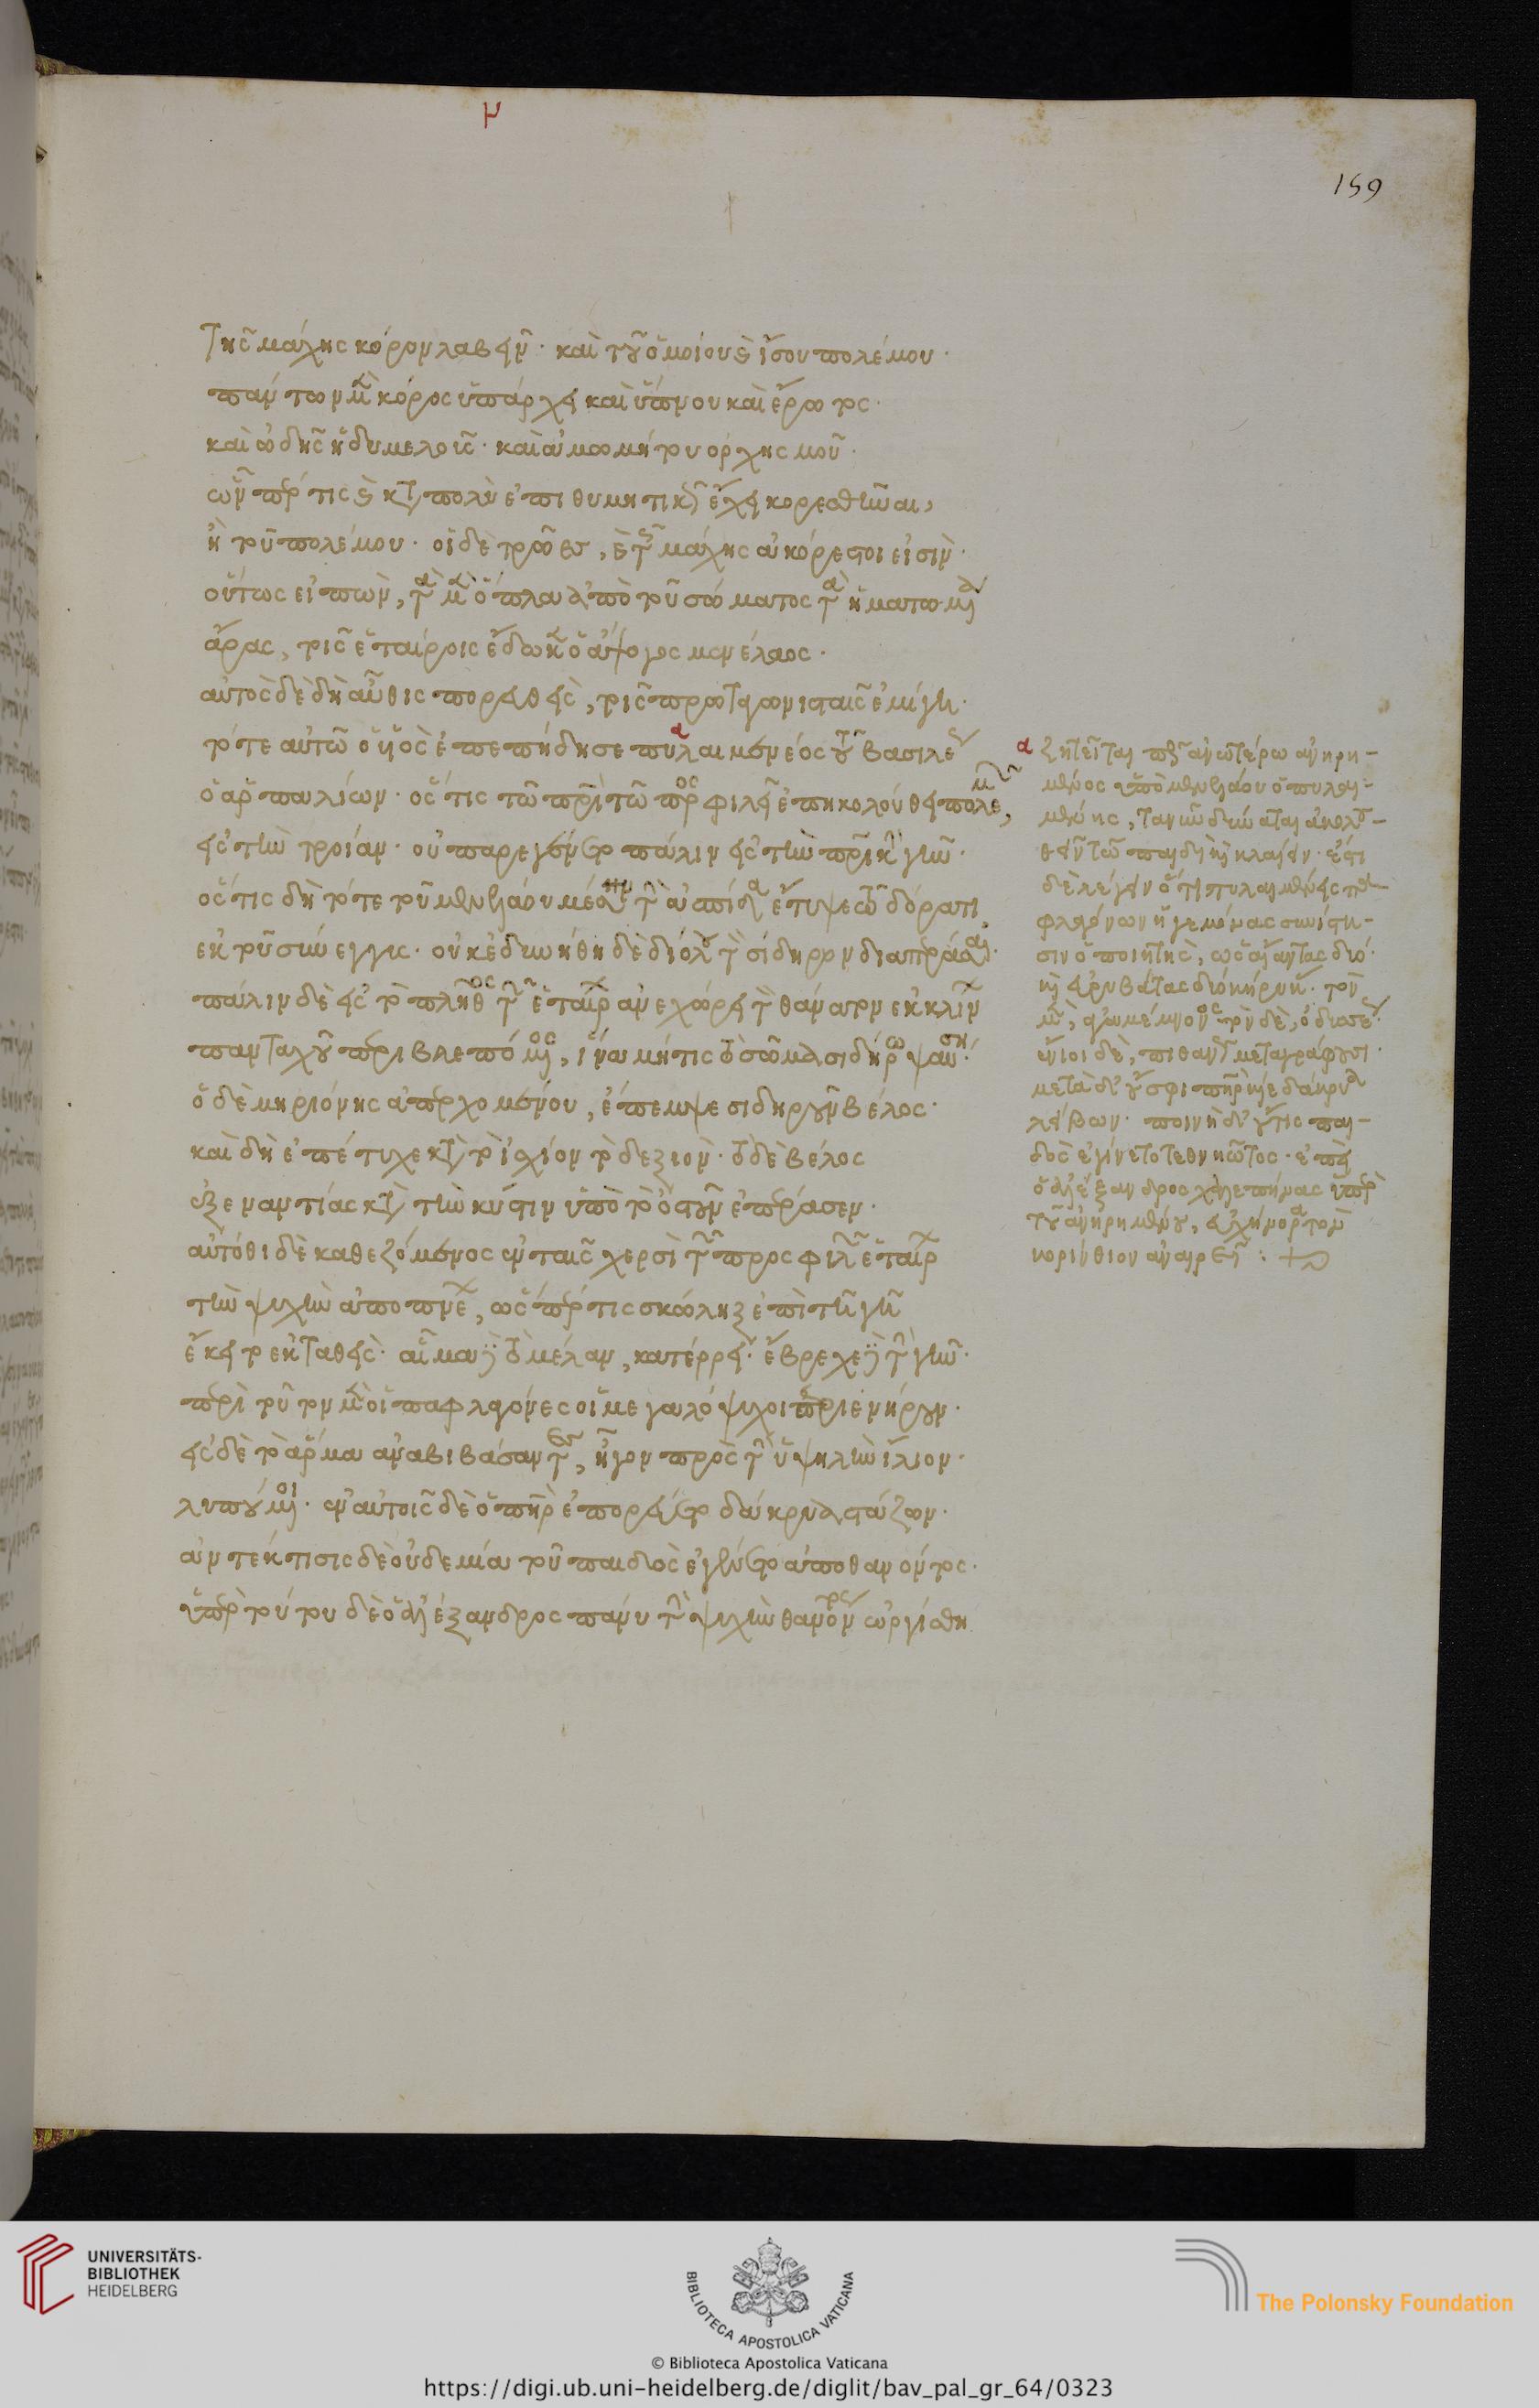 Ν
159
τῆς μάχης κόρον λαβεῖν· καὶ τοῦ ὁμοίου καὶ ἴσου πολέμου·
πάντων μὲν κόρος ὑπάρχει καὶ ὕπνου καὶ ἔρωτος·
καὶ ᾠδῆς ἡδυμελοῦς· καὶ ἀμωμήτου ὀρχησμοῦ·
ὧν πέρ τις καὶ κατὰ πολὺ ἐπιθυμητικὸν ἔχει κορεσθῆναι,
ἢ τοῦ πολέμου· οἱ δὲ τρῶες, καὶ τῆς μάχης ἀκόρεστοι εἰσίν·
οὕτως εἰπὼν, τὰ μὲν ὅπλα ἀπὸ τοῦ σώματος τὰ ἡματωμένα
ἄρας, τοῖς ἑταίροις ἔδωκεν ὁ ἄψογος μενέλαος·
αὐτὸς δὲ δὴ αὖθις πορευθεὶς, τοῖς πρωταγωνισταῖς ἐμίγη·
τότε αὐτῷ ὁ υἱὸς ἐπεπήδησε πυλαιμένεος τοῦ βασιλέως
ὁ ἁρπαλίων· ὅς τις τῷ πατρὶ τῷ προσφιλεῖ ἐπηκολούθει πολεμεῖν,
εἰς τὴν τροίαν· οὐ παρεγένετο πάλιν εἰς τὴν πατρικὴν γῆν·
ὅς τις δὴ τότε τοῦ μενελάου μέσην τὴν ἀσπίδα ἔτυψε τῷ δόρατι
ἐκ τοῦ σύνεγγυς· οὐκ ἐδυνήθη δὲ διόλου τὸν σίδηρον διαπεράσαι·
πάλιν δὲ εἰς τὸ πλῆθος τῶν ἑταίρων ἀνεχώρει τὸν θάνατον ἐκκλίνων
πανταχοῦ περιβλεπόμενος, ἵνα μή τις τὸ σῶμα σιδήρω ψαύση·
ὁ δὲ μηριόνης ἀπερχομένου, ἔπεμψε σιδηροῦν βέλος·
καὶ δὴ ἐπέτυχε κατὰ τὸ ἰσχίον τὸ δεξιόν· τὸ δὲ βέλος
ἐξεναντίας κατὰ τὴν κύστιν ὑπὸ τὸ ὀστοῦν ἐπέρασεν·
αὐτόθι δὲ καθεζόμενος ἐν ταῖς χερσὶ τῶν προσφιλῶν ἑταίρων
τὴν ψυχὴν ἀποπνέων, ὥσπερ τις σκώληξ ἐπὶ τῇ γῇ
ἔκειτο ἐκταθείς· αἷμα καὶ τὸ μέλαν, κατέρρει· ἔβρεχε καὶ τὴν γῆν·
περὶ τοῦτον μὲν οἱ παφλαγόνες οἱ μεγαλόψυχοι περιενήργουν·
εἰς δὲ τὸ ἅρμα ἀναβιβάσαντες, ἦγον πρὸς τὴν ὑψηλὴν ἴλιον·
λυπούμενοι· ἐν αὐτοῖς δὲ ὁ πατὴρ ἐπορεύετο δάκρυα στάζων·
ἀντέκτισις δὲ οὐδεμία τοῦ παιδὸς ἐγένετο ἀποθανόντος·
ὑπὲρ τούτου δὲ ὁ ἀλέξανδρος πάνυ τὴν ψυχὴν θανόντος ὠργίσθη
α ζητεῖται πῶς ἀνωτέρω ἀνῃρη-
μένος ὑπὸ μενελάου ὁ πυλαι-
μένης, τανῦν δύναται ἀκολου-
θεῖν τῷ παιδὶ καὶ κλαίειν· ἔστι
δὲ λέγειν ὅτι πυλαιμένεις
φλαγόνων ἡγεμόνας συνίστη-
σιν ὁ ποιητὴς, ὡς αἴαντας δύο·
καὶ εὐρυβάτας δύο κήρυκας· τὸν
μὲν, ἀγαμέμνονος τὸν δὲ, ὀδυσσέως·
ἔνιοι δὲ, πιθανῶς μεταγράφουσι·
μετὰ δ' οὔ σφι πατὴρ κίε δάκρυα
λείβων· ποινὴ δ' οὔτις παι-
δὸς ἐγίνετο τεθνηῶτος· ἐπεὶ
ὁ ἀλέξανδρος χαλεπήνας ὑπὲρ
τοῦ ἀνῃρημένου, εὐχήνορα τὸν
κορίνθιον ἀναιρεῖ :
UNIVERSITÄTS-
BIBLIOTHEK
HEIDELBERG
BIBLIOTECA APOSTOLICA VATICANA
The Polonsky Foundation
© Biblioteca Apostolica Vaticana
https://digi.ub.uni-heidelberg.de/diglit/bav_pal_gr_64/0323